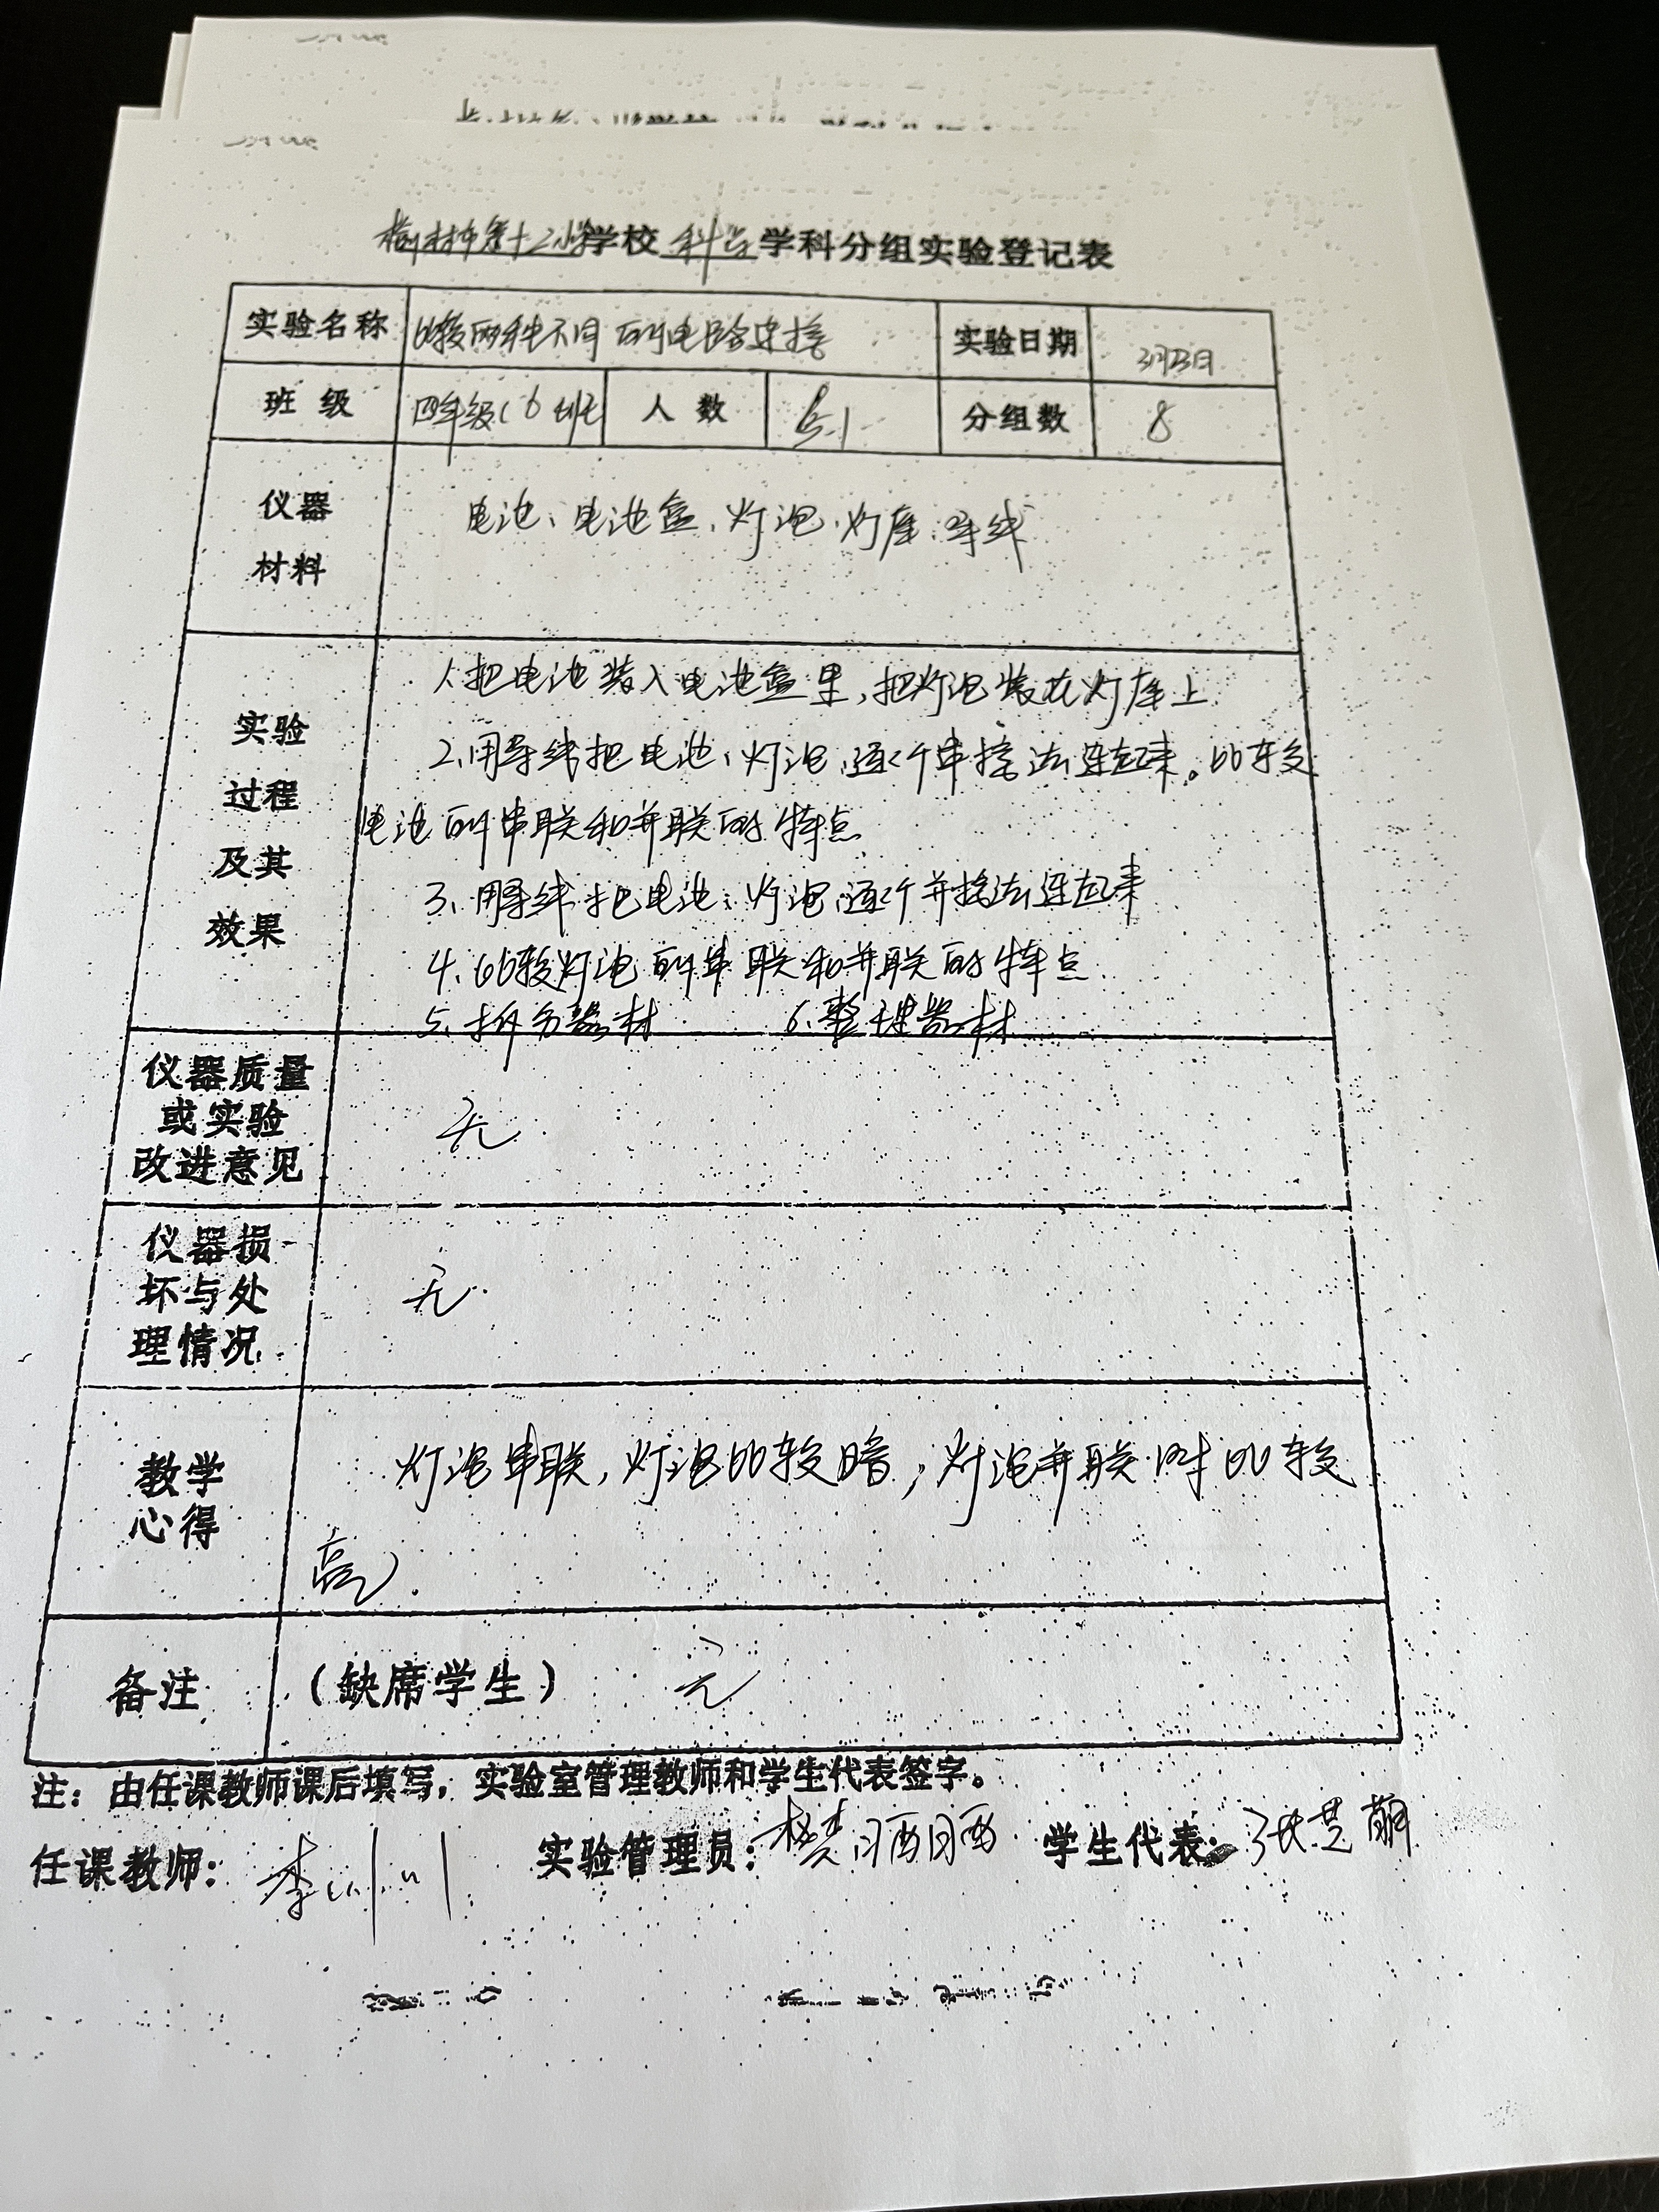 榆林市第十二小学学校 科学 学科分组实验登记表
实验名称 比较两种不同的电路连接 实验日期 3月23日
班级 四年级(6班) 人数 51 分组数 8
仪器
材料
电池、电池盒、灯泡、灯座、导线
实验
过程
及其
效果
1、把电池装入电池盒里,把灯泡装在灯座上
2、用导线把电池、灯泡、逐个串接法连起来。比较
电池的串联和并联的特点
3、用导线把电池、灯泡、逐个并接法连起来
4、比较灯泡的串联和并联的特点
5、拆分器材 6、整理器材
仪器质量
或实验
改进意见
无
仪器损
坏与处
理情况
无
教学
心得
灯泡串联,灯泡比较暗;灯泡并联时比较
亮.
备注 (缺席学生) 无
注:由任课教师课后填写,实验室管理教师和学生代表签字。
任课教师: 李 实验管理员: 樊茜茜 学生代表: 张芝萌